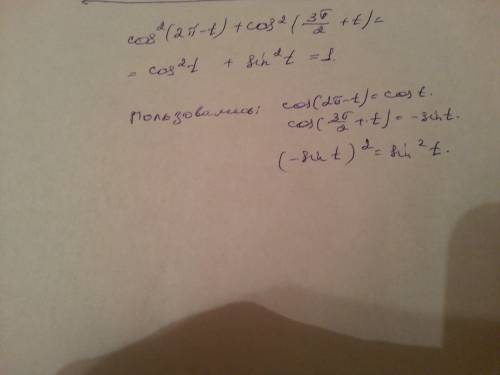 cos²(2π-t)+cos²(3π/2+t)=
= cos²t + sin²t =1.
Пользовались: cos(2π-t)=cos t.
cos(3π/2+t)=-sin t.
(-sin t)²=sin²t.